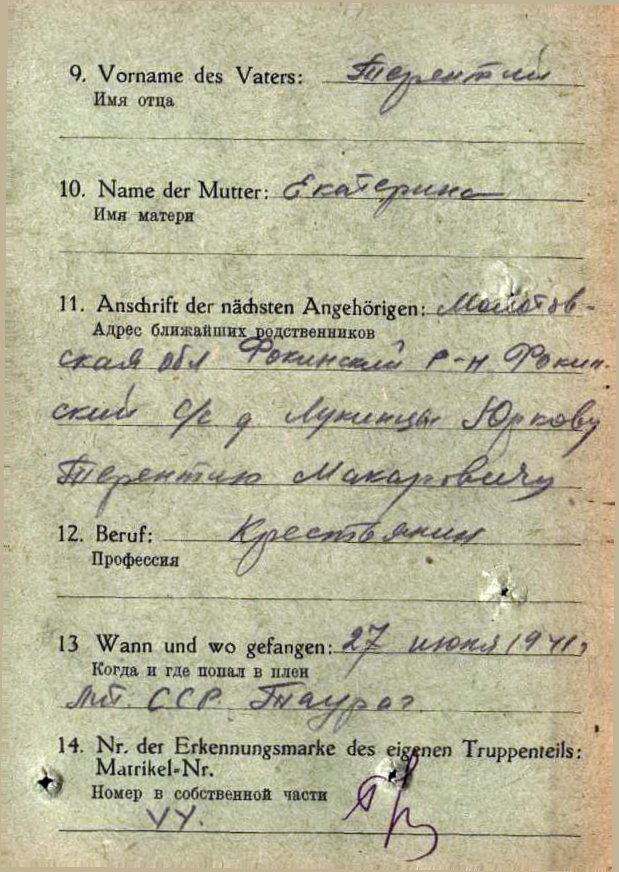 9. Vorname des Vaters: Терентий
Имя отца
10. Name der Mutter: Екатерина
Имя матери
11. Anschrift der nächsten Angehörigen: Молотов-
Адрес ближайших родственников
ская обл Фокинский р-н Фокин-
ский с/с д Лукинцы Юркову
Терентию Макаровичу
12. Beruf: Крестьянин
Профессия
13 Wann und wo gefangen: 27 июня 1941г
Когда и где попал в плен
Лит. ССР. Таураг
14. Nr. der Erkennungsmarke des eigenen Truppenteils:
Matrikel-Nr.
Номер в собственной части